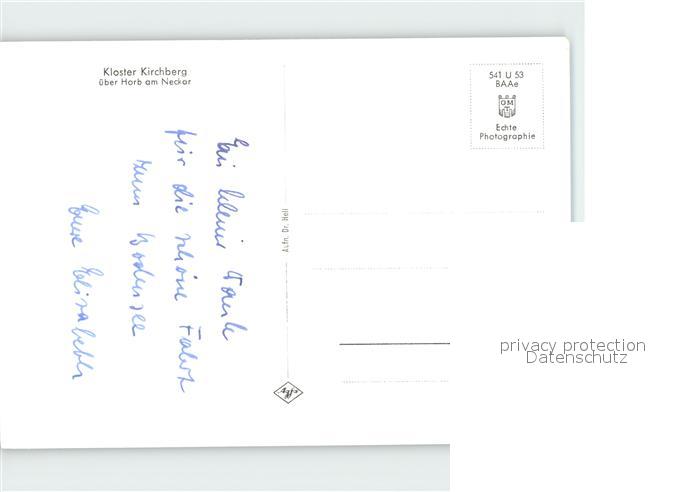 Kloster Kirchberg
über Horb am Neckar
541 U 53
BAAe
OM
Echte
Photographie
Ein kleiner Dank
für die schöne Fahrt
zum Bodensee
Eure Elisabeth
Aufn. Dr. Hell
Agfa
privacy protection
Datenschutz